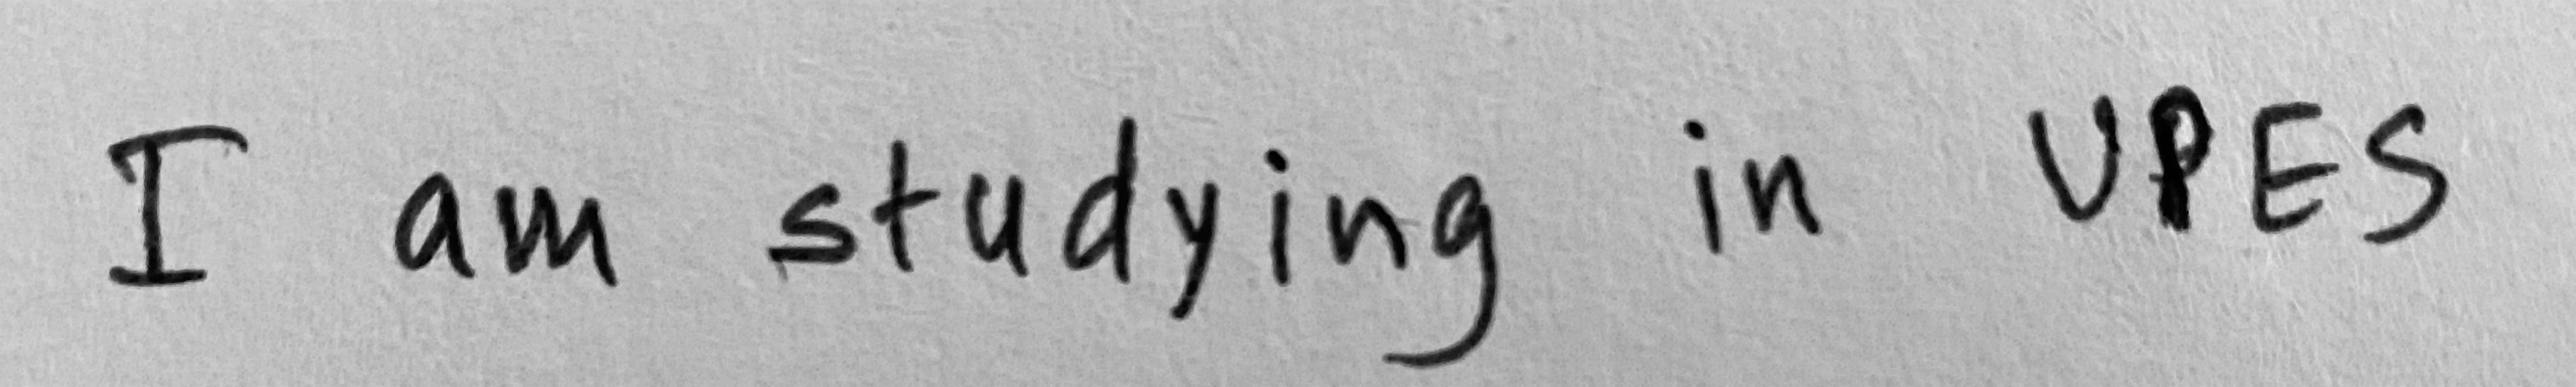 I am studying in UPES